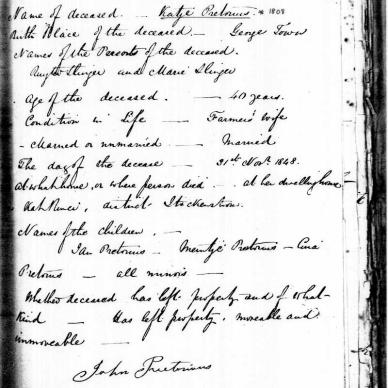 Name of deceased. — Katje Pretorius. * 1808
Birth Place of the deceased — George Town
Names of the Parents of the deceased.
Slinger and Maria Slinger
Age of the deceased. — 40 years.
Condition in Life — Farmers Wife
Married or unmarried — Married
The day of the decease — 31st Novr. 1848.
At what house, or where person died — at her dwelling house
Kat River, district Stockenstrom.
Names of the children. —
Jan Pretorius — Pretorius —
Pretorius — all minors —
Whether deceased has left property and of what
Kind — Has left property, moveable and
immoveable —
John Pretorius